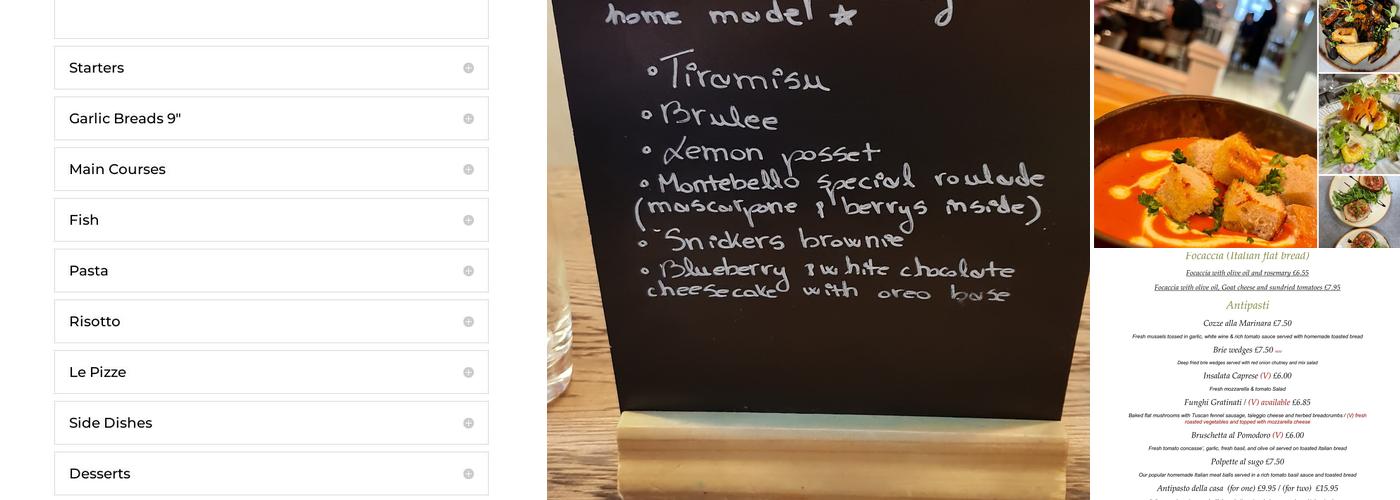 Starters
Garlic Breads 9"
Main Courses
Fish
Pasta
Risotto
Le Pizze
Side Dishes
Desserts
home model ☆
• Tiramisu
• Brulee
• Lemon posset
• Montebello special roulade
(mascarpone & berrys inside)
• Snickers brownie
• Blueberry & white chocolate
cheesecake with oreo base
Focaccia (Italian flat bread)
Focaccia with olive oil and rosemary £6.55
Focaccia with olive oil, Goat cheese and sundried tomatoes £7.95
Antipasti
Cozze alla Marinara £7.50
Fresh mussels tossed in garlic, white wine & rich tomato sauce served with homemade toasted bread
Brie wedges £7.50
Deep fried brie wedges served with red onion chutney and mix salad
Insalata Caprese (V) £6.00
Fresh mozzarella & tomato Salad
Funghi Gratinati / (V) available £6.85
Baked flat mushrooms with Tuscan fennel sausage, taleggio cheese and herbed breadcrumbs / (V) fresh
roasted vegetables and topped with mozzarella cheese
Bruschetta al Pomodoro (V) £6.00
Fresh tomato concasse', garlic, fresh basil, and olive oil served on toasted Italian bread
Polpette al sugo £7.50
Our popular homemade Italian meat balls served in a rich tomato basil sauce and toasted bread
Antipasto della casa (for one) £9.95 / (for two) £15.95